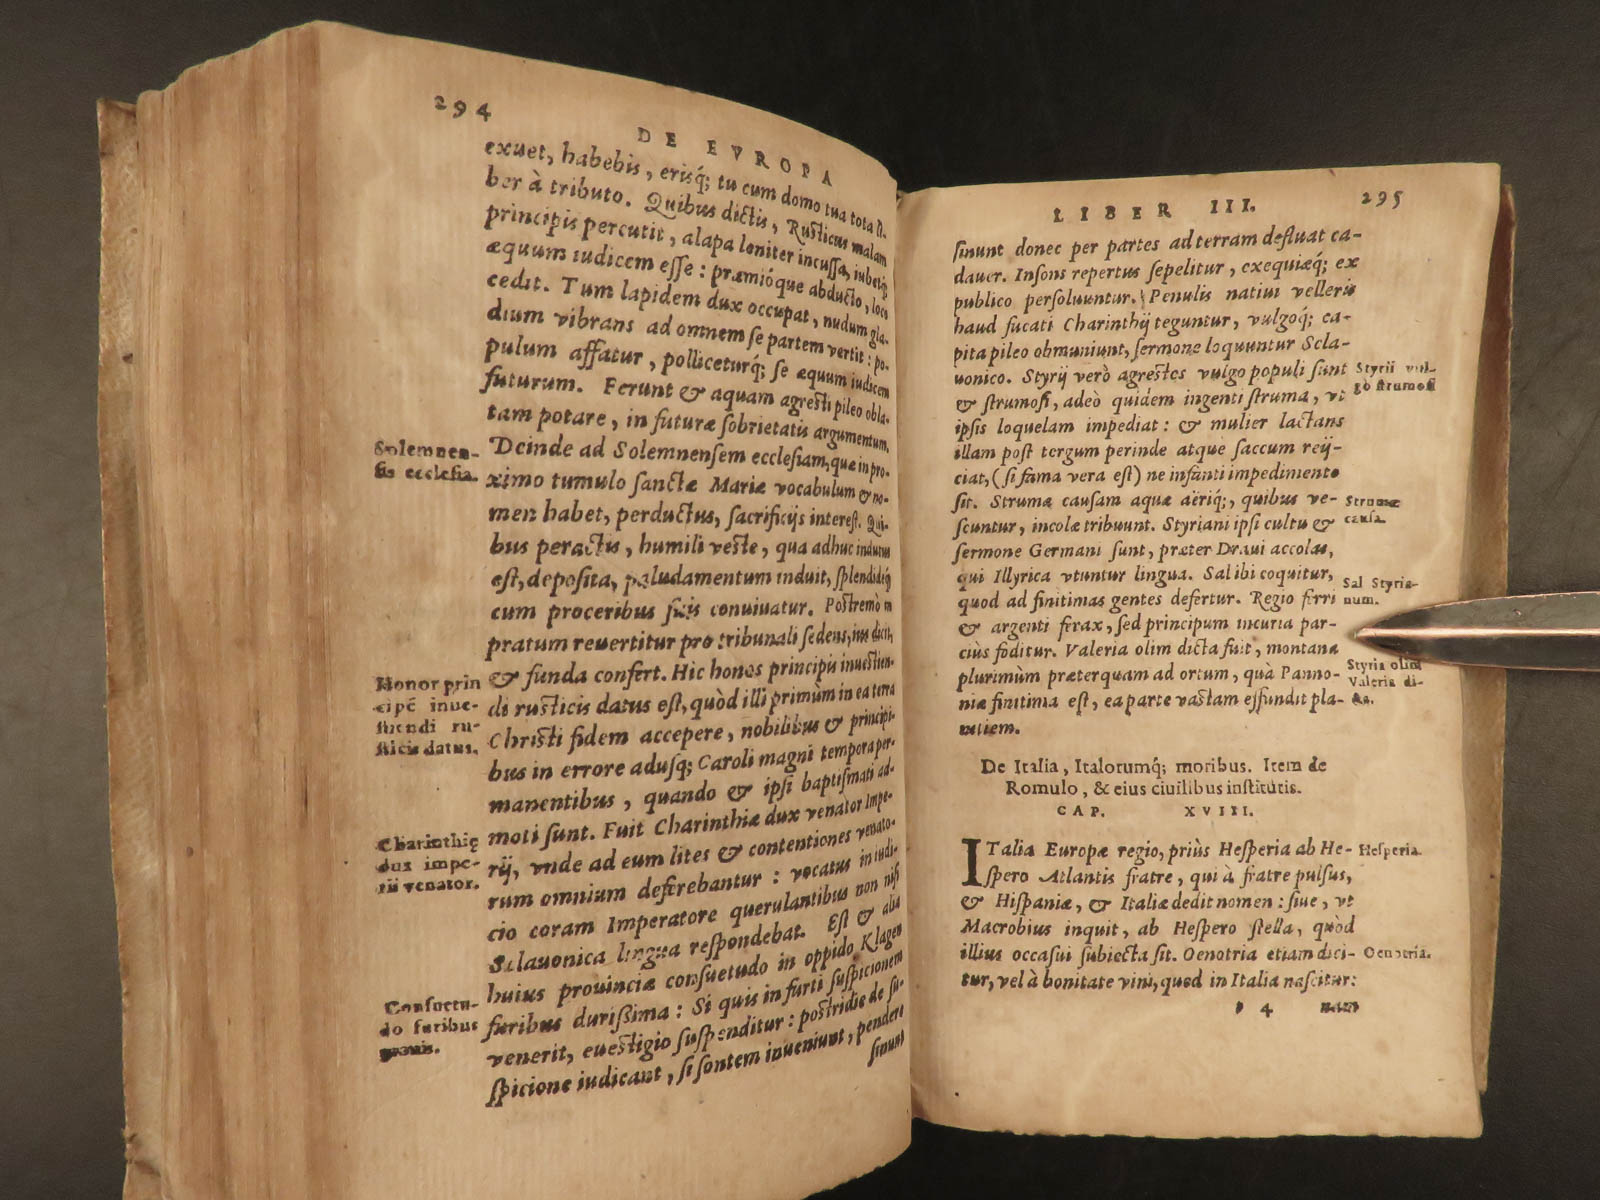 294
DE EVROPA
exuet, habebis, erisq́; tu cum domo tua tota li-
ber à tributo. Quibus dictis, Rusticus malam
principis percutit, alapa leniter incussa, iubetq́
æquum iudicem esse: præmióque abducto, loco
cedit. Tum lapidem dux occupat, nudum gla-
dium vibrans ad omnem se partem vertit: po-
pulum affatur, polliceturq́; se æquum iudicem
futurum. Ferunt & aquam agresti pileo obla-
tam potare, in futuræ sobrietatis argumentum.
Solemnen-
sis ecclesia.
Deinde ad Solemnensem ecclesiam, quæ in pro-
ximo tumulo sanctæ Mariæ vocabulum & no-
men habet, perductus, sacrificijs interest. Qui-
bus peractis, humili veste, qua adhuc indutus
est, deposita, paludamentum induit, splendidéq́
cum proceribus suis conuiuatur. Postremò in
pratum reuertitur pro tribunali sedens, ius dicit,
Honor prin
cipē inue-
stiendi ru-
sticis datus.
& funda confert. Hic honos principis inuestien-
di rusticis datus est, quòd illi primùm in ea terra
Christi fidem accepere, nobilibus & principi-
bus in errore adusq; Caroli magni tempora per-
manentibus, quando & ipsi baptismati ad-
moti sunt. Fuit Charinthiæ dux venator Impe-
Charinthię
dux impe-
rii venator.
rij, vnde ad eum lites & contentiones venato-
rum omnium deferebantur: vocatus in iudi-
cio coram Imperatore querulantibus non nisi
Sclauonica lingua respondebat. Est & alia
huius prouinciæ consuetudo in oppido Klagen
Consuetu-
do furibus
grauis.
furibus durissima: Si quis in furti suspicionem
venerit, euestigio suspenditur: postridie de su-
spicione iudicant, si sontem inueniunt, pendere
sinunt
LIBER III.
295
sinunt donec per partes ad terram defluat ca-
dauer. Insons repertus sepelitur, exequiæq́; ex
publico persoluuntur. Penulis natiui velleris
haud fucati Charinthij teguntur, vulgoq́; ca-
pita pileo obmuniunt, sermone loquuntur Scla-
uonico. Styrij verò agrestes vulgo populi sunt
& strumosi, adeò quidem ingenti struma, vt
Styrii vul-
gò strumosi
ipsis loquelam impediat: & mulier lactans
illam post tergum perinde atque saccum reij-
ciat, (si fama vera est) ne infanti impedimento
sit. Strumæ causam aquæ aëriq́;, quibus ve-
scuntur, incolæ tribuunt. Styriani ipsi cultu &
Strumæ
causa.
sermone Germani sunt, præter Draui accolas,
qui Illyrica vtuntur lingua. Sal ibi coquitur,
quod ad finitimas gentes defertur. Regio ferri
Sal Styria-
num.
& argenti ferax, sed principum incuria par-
ciùs foditur. Valeria olim dicta fuit, montana
plurimùm præterquam ad ortum, quà Panno-
Styria olim
Valeria di-
cta.
niæ finitima est, ea parte vastam effundit pla-
nitiem.
De Italia, Italorumq́; moribus. Item de
Romulo, & eius ciuilibus institutis.
CAP. XVIII.
ITalia Europæ regio, priùs Hesperia ab He-
Hesperia.
spero Atlantis fratre, qui à fratre pulsus,
& Hispaniæ, & Italiæ dedit nomen: siue, vt
Macrobius inquit, ab Hespero stella, quòd
illius occasui subiecta sit. Oenotria etiam dici-
Oenotria.
tur, vel à bonitate vini, quod in Italia nascitur:
4
nam